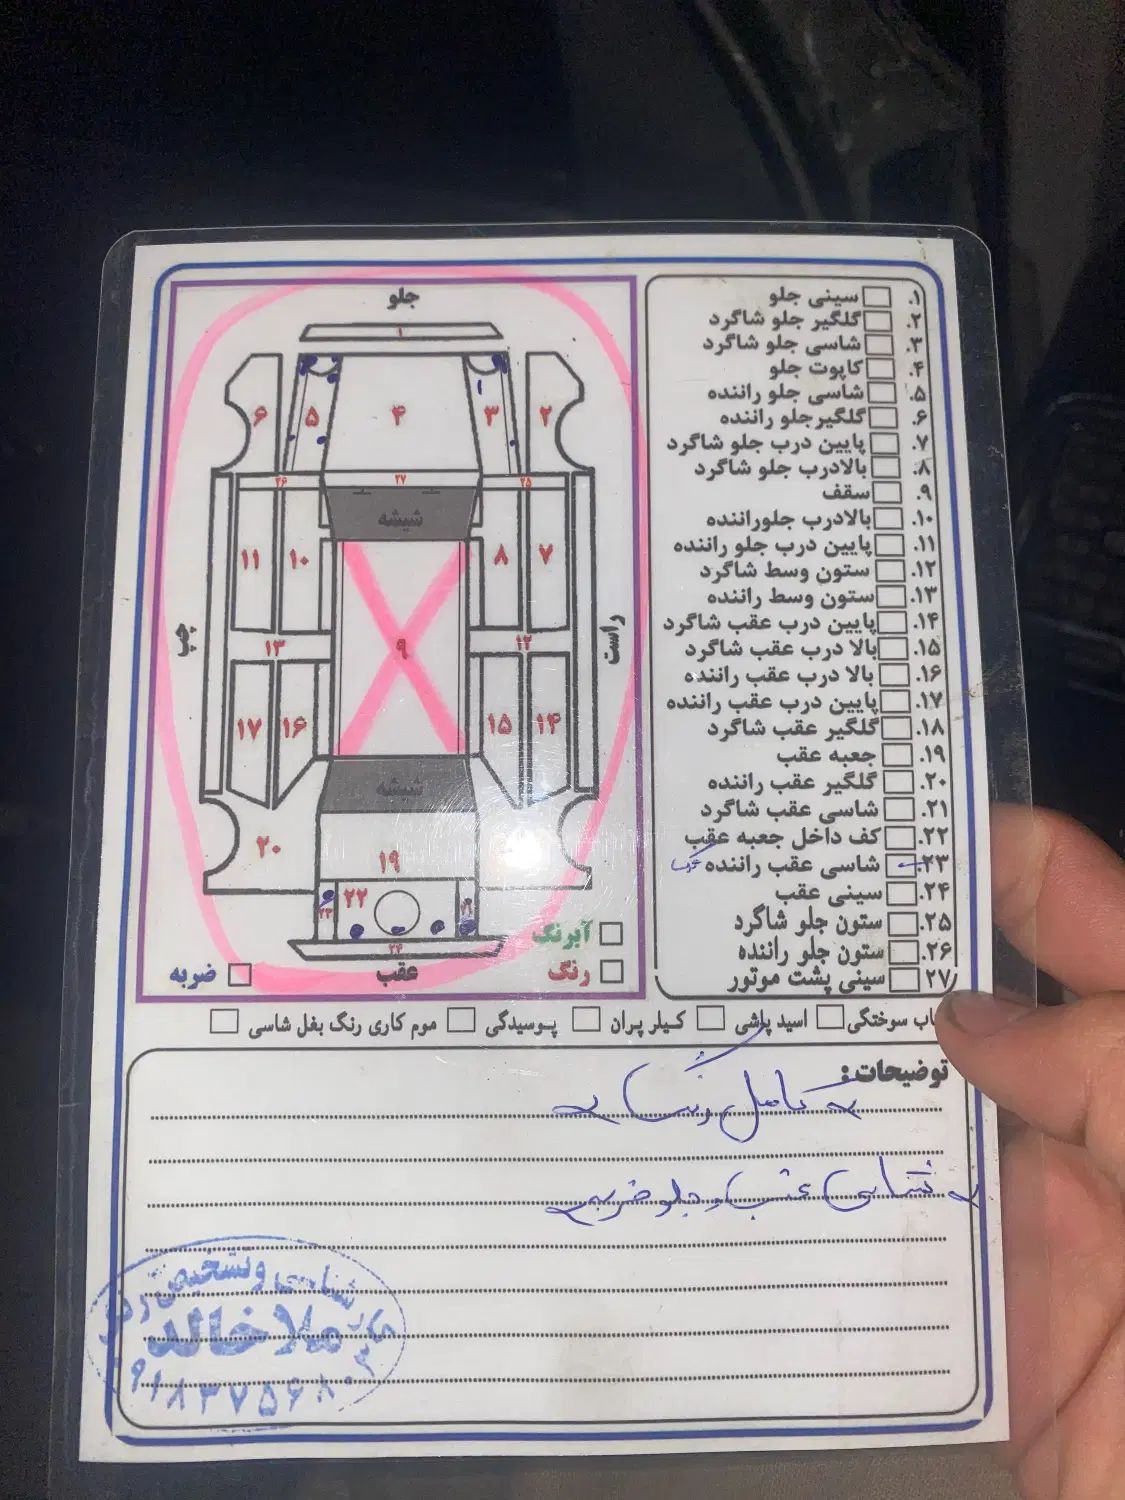 جلو
۱
۶
۵
۴
۳
۲
۲۶
۲۷
۲۵
شیشه
۱۱
۱۰
۸
۷
چپ
راست
۹
۱۳
۱۲
۱۷
۱۶
۱۵
۱۴
شیشه
۲۰
۱۹
۲۳
۲۲
۲۱
۲۴
عقب
آبرنگ
رنگ
ضربه
۱. سینی جلو
۲. گلگیر جلو شاگرد
۳. شاسی جلو شاگرد
۴. کاپوت جلو
۵. شاسی جلو راننده
۶. گلگیرجلو راننده
۷. پایین درب جلو شاگرد
۸. بالادرب جلو شاگرد
۹. سقف
۱۰. بالادرب جلوراننده
۱۱. پایین درب جلو راننده
۱۲. ستون وسط شاگرد
۱۳. ستون وسط راننده
۱۴. پایین درب عقب شاگرد
۱۵. بالا درب عقب شاگرد
۱۶. بالا درب عقب راننده
۱۷. پایین درب عقب راننده
۱۸. گلگیر عقب شاگرد
۱۹. جعبه عقب
۲۰. گلگیر عقب راننده
۲۱. شاسی عقب شاگرد
۲۲. کف داخل جعبه عقب
۲۳. شاسی عقب راننده
۲۴. سینی عقب
۲۵. ستون جلو شاگرد
۲۶. ستون جلو راننده
۲۷. سینی پشت موتور
اب سوختگی اسید پاشی کیلر پران پوسیدگی موم کاری رنگ بغل شاسی
توضیحات:
کامل رنگ
شاسی عقب و جلو ضربه
کارشناسی و تشخیص رنگ
ملاخالد
۰۹۱۸۳۷۵۶۸۰۳